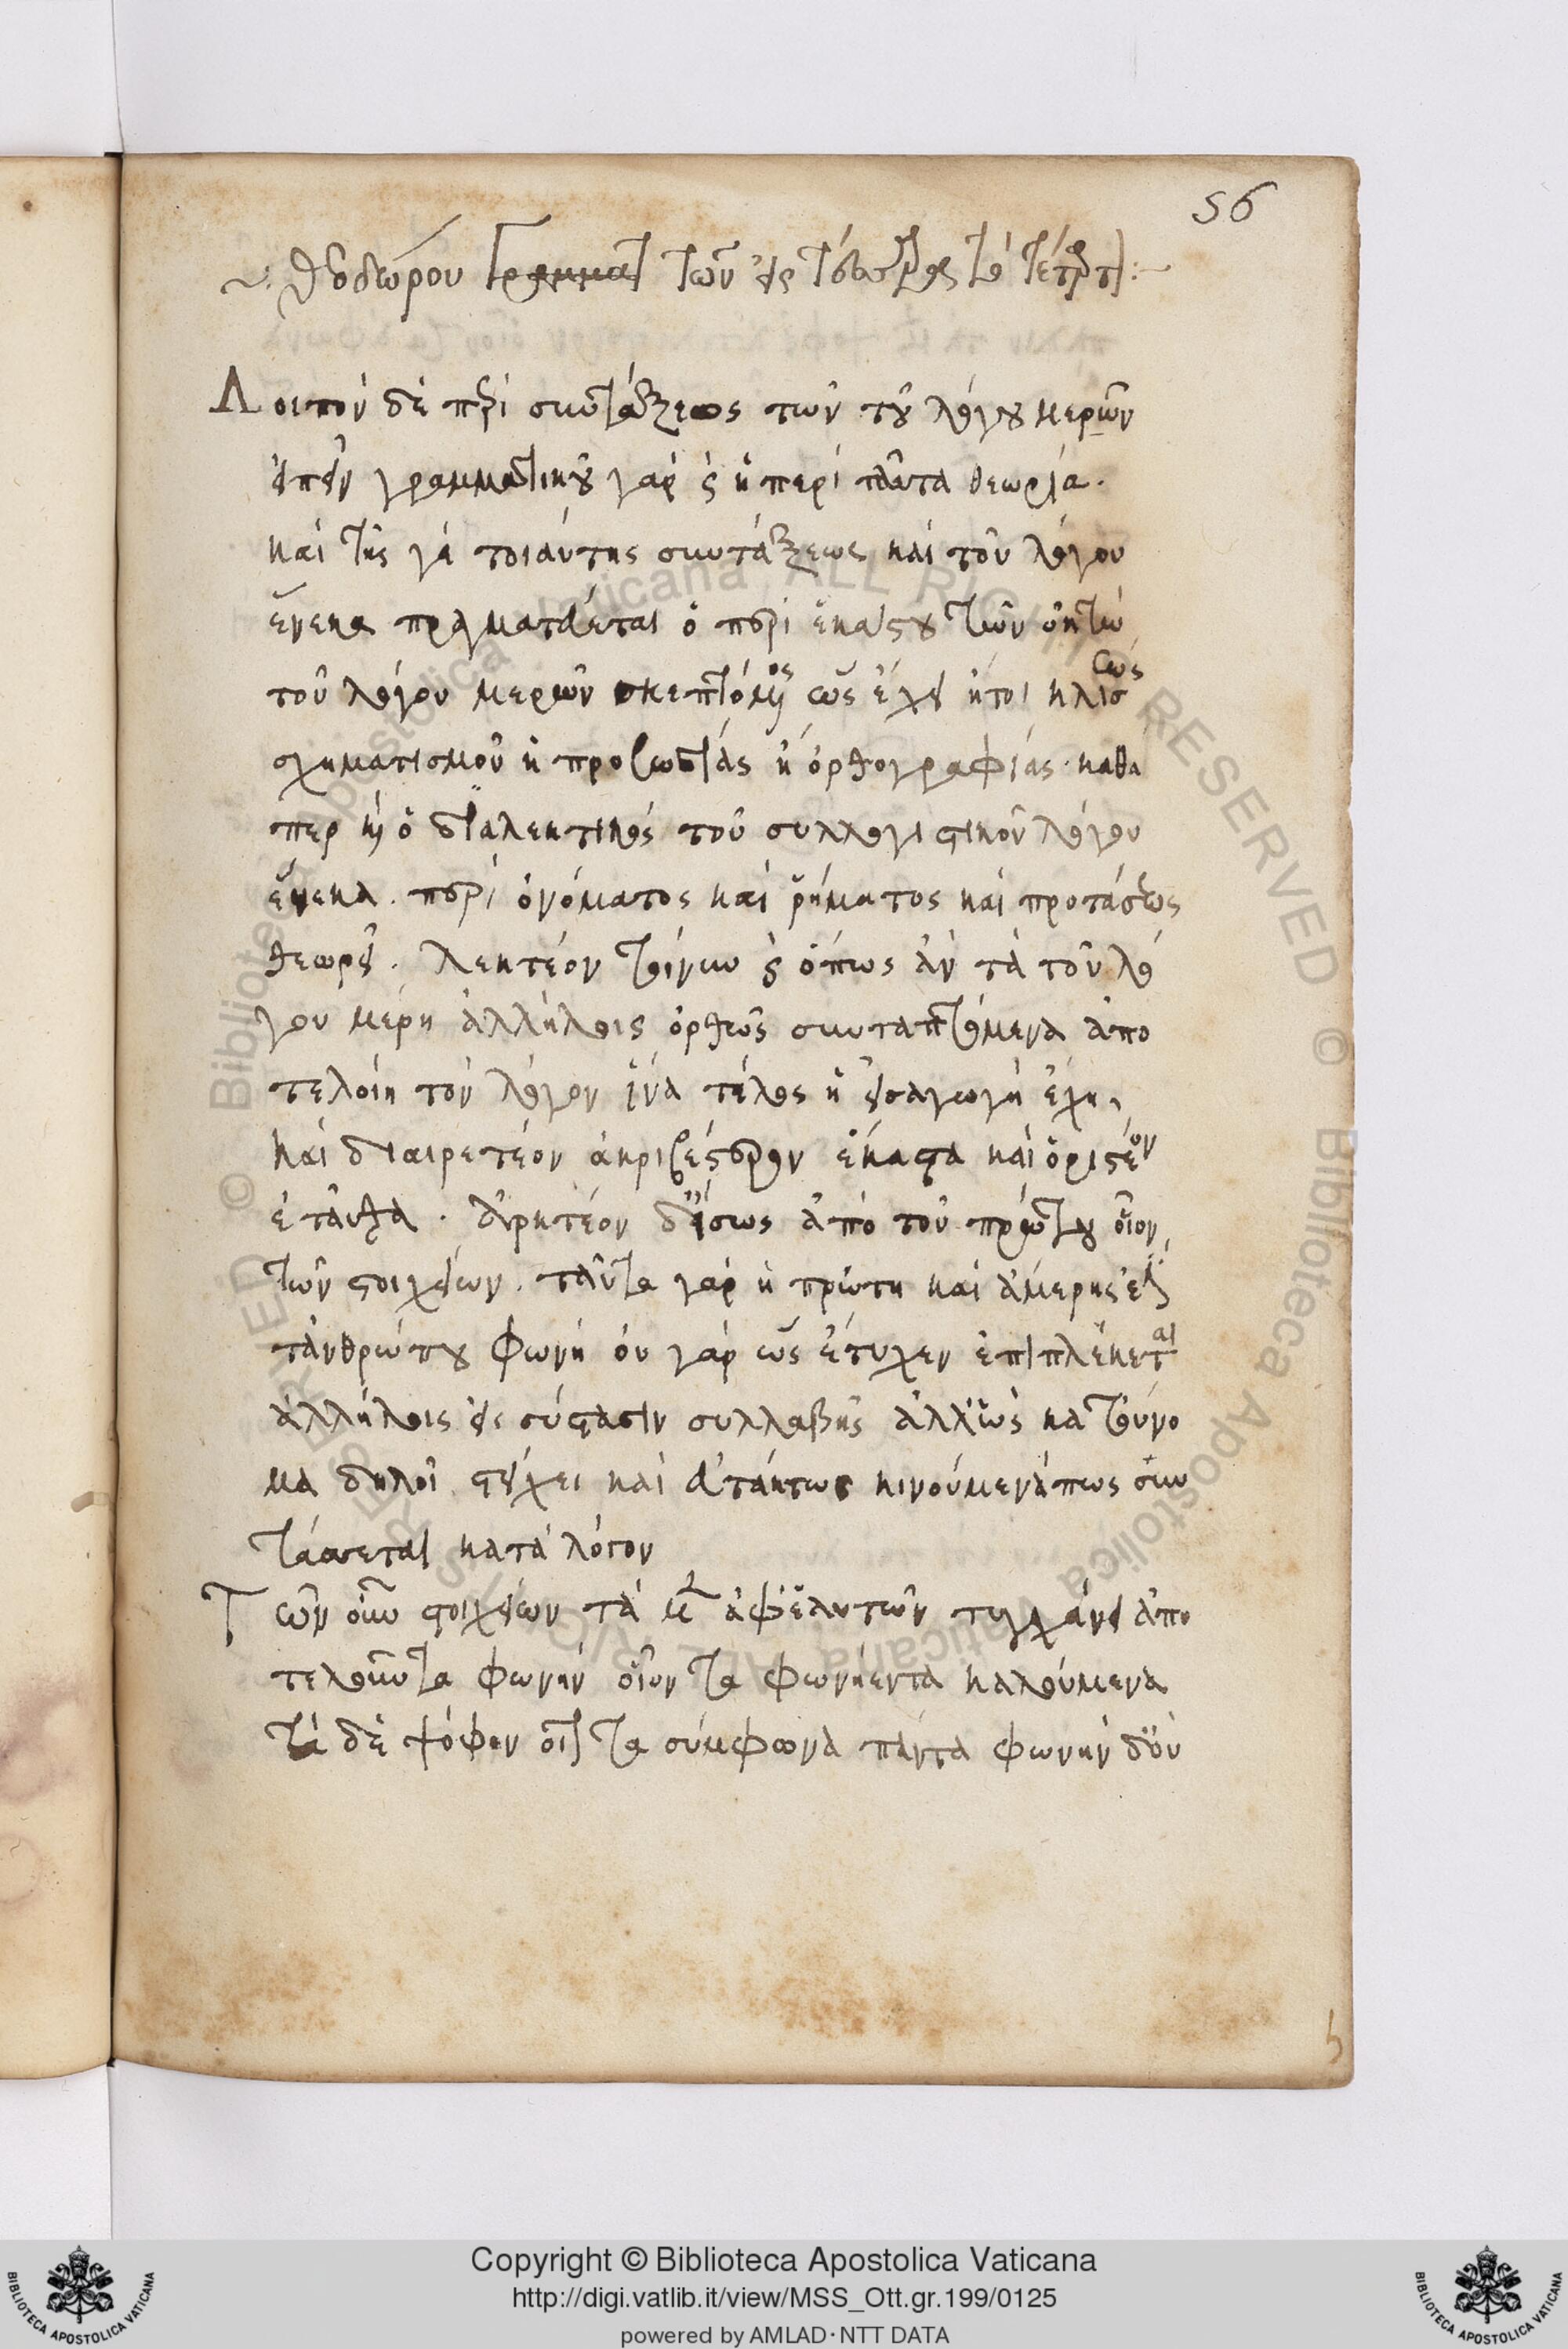 56
Θεοδώρου Γραμματ τῶν εἰς τέσσαρας τὸ τέταρτ:
Λοιπὸν δὲ περὶ συντάξεως τῶν τοῦ λόγου μερῶν
εἰπεῖν γραμματικοῦ γὰρ ἐς ἡ περὶ ταῦτα θεωρία.
καὶ τῆς γὰ τοιαύτης συντάξεως καὶ τοῦ λόγου
ἕνεκα πραγματεύεται ὁ περὶ ἑκάστου τῶν ὀκτὼ
τοῦ λόγου μερῶν σκεπτόμενος ὡς ἔχει ἤτοι κλίσεως
σχηματισμοῦ ἢ προσωδίας ἢ ὀρθογραφίας. καθά
περ καὶ ὁ διαλεκτικὸς τοῦ συλλογιστικοῦ λόγου
ἕνεκα. περὶ ὀνόματος καὶ ῥήματος καὶ προτάσεως
θεωρεῖ. Λεκτέον τοίνυν ἐς ὅπως ἂν τὰ τοῦ λό
γου μέρη ἀλλήλοις ὀρθῶς συνταπτόμενα ἀπο
τελοίη τὸν λόγον ἵνα τέλος ἡ εἰσαγωγὴ ἔχη,
καὶ διαιρετέον ἀκριβέστερον ἕκαστα καὶ ὁριστέον
ἐταῦθα. Ἀρκτέον δ' ἴσως ἀπὸ τοῦ πρώτου οἷον
τῶν στοιχείων. ταῦτα γὰρ ἡ πρώτη καὶ ἀμερής ἐστι
τἀνθρώπου φωνή οὐ γὰρ ὡς ἔτυχεν ἐπιπλέκεται
ἀλλήλοις εἰς σύστασιν συλλαβῆς ἀλλ' ὡς κατοὔνο
μα δηλοῖ στείχει καὶ ἀτάκτως κινούμενά πως συν
τάσσεται κατὰ λόγον
Τῶν οὖν στοιχείων τὰ μὲν ἀφ' ἑαυτῶν τυγχάνει ἀπο
τελοῦντα φωνὴν οἷον τὰ φωνήεντα καλούμενα
τὰ δὲ ψόφον οἷον τὰ σύμφωνα πάντα φωνὴν δ' οὐ
Copyright © Biblioteca Apostolica Vaticana
http://digi.vatlib.it/view/MSS_Ott.gr.199/0125
powered by AMLAD·NTT DATA